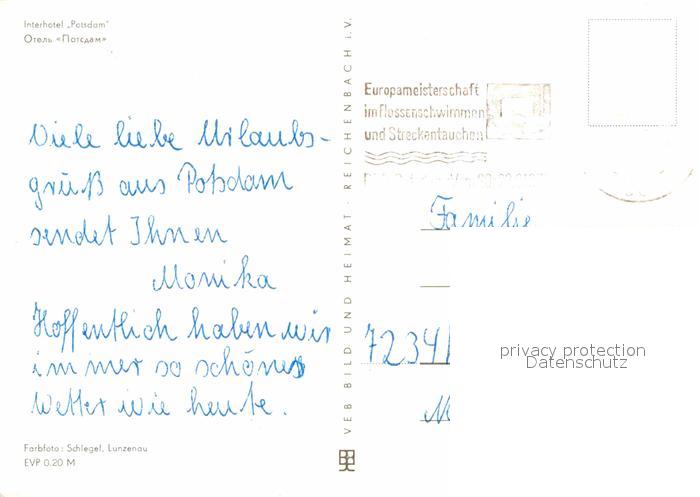 Interhotel „Potsdam"
Отель «Потсдам»
Viele liebe Urlaubs-
grüß aus Potsdam
sendet Ihnen
Monika
Hoffentlich haben wir
immer so schönes
Wetter wie heute.
Farbfoto: Schlegel, Lunzenau
EVP 0.20 M
VEB BILD UND HEIMAT · REICHENBACH i. V.
Europameisterschaft
im Flossenschwimmen
und Streckentauchen
Familie
7234
privacy protection
Datenschutz